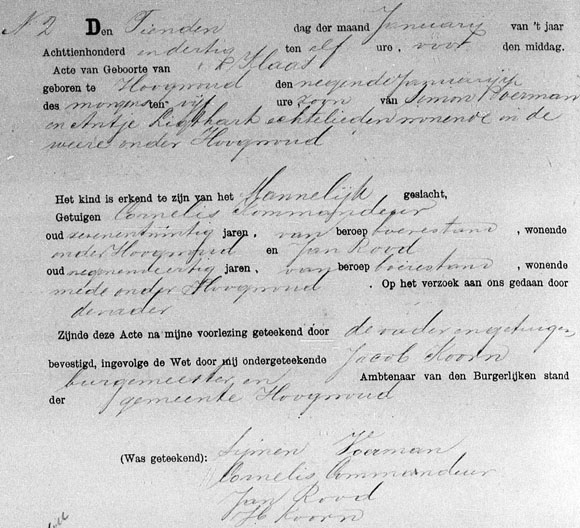 N 2 Den Tienden dag der maand January van 't jaar
Achttienhonderd en dertig ten elf ure, voor den middag.
Acte van Geboorte van Klaas
geboren te Hoogwoud den negende Januarij
des morgens ten vijf ure zoon van Simon Voerman
en Antje Ligthart echtelieden wonende in de
weere onder Hoogwoud
Het kind is erkend te zijn van het Mannelijk geslacht,
Getuigen Cornelis Commandeur
oud zevenentwintig jaren, van beroep boerestand, wonende
onder Hoogwoud en Jan Rood
oud negenendertig jaren, van beroep boerestand, wonende
mede onder Hoogwoud. Op het verzoek aan ons gedaan door
de vader
Zijnde deze Acte na mijne voorlezing geteekend door de vader en getuigen
bevestigd, ingevolge de Wet door mij ondergeteekende Jacob Koorn
burgemeester, en Ambtenaar van den Burgerlijken stand
der gemeente Hoogwoud
(Was geteekend): Sijmen Voerman
Cornelis Commandeur
Jan Rood
Koorn